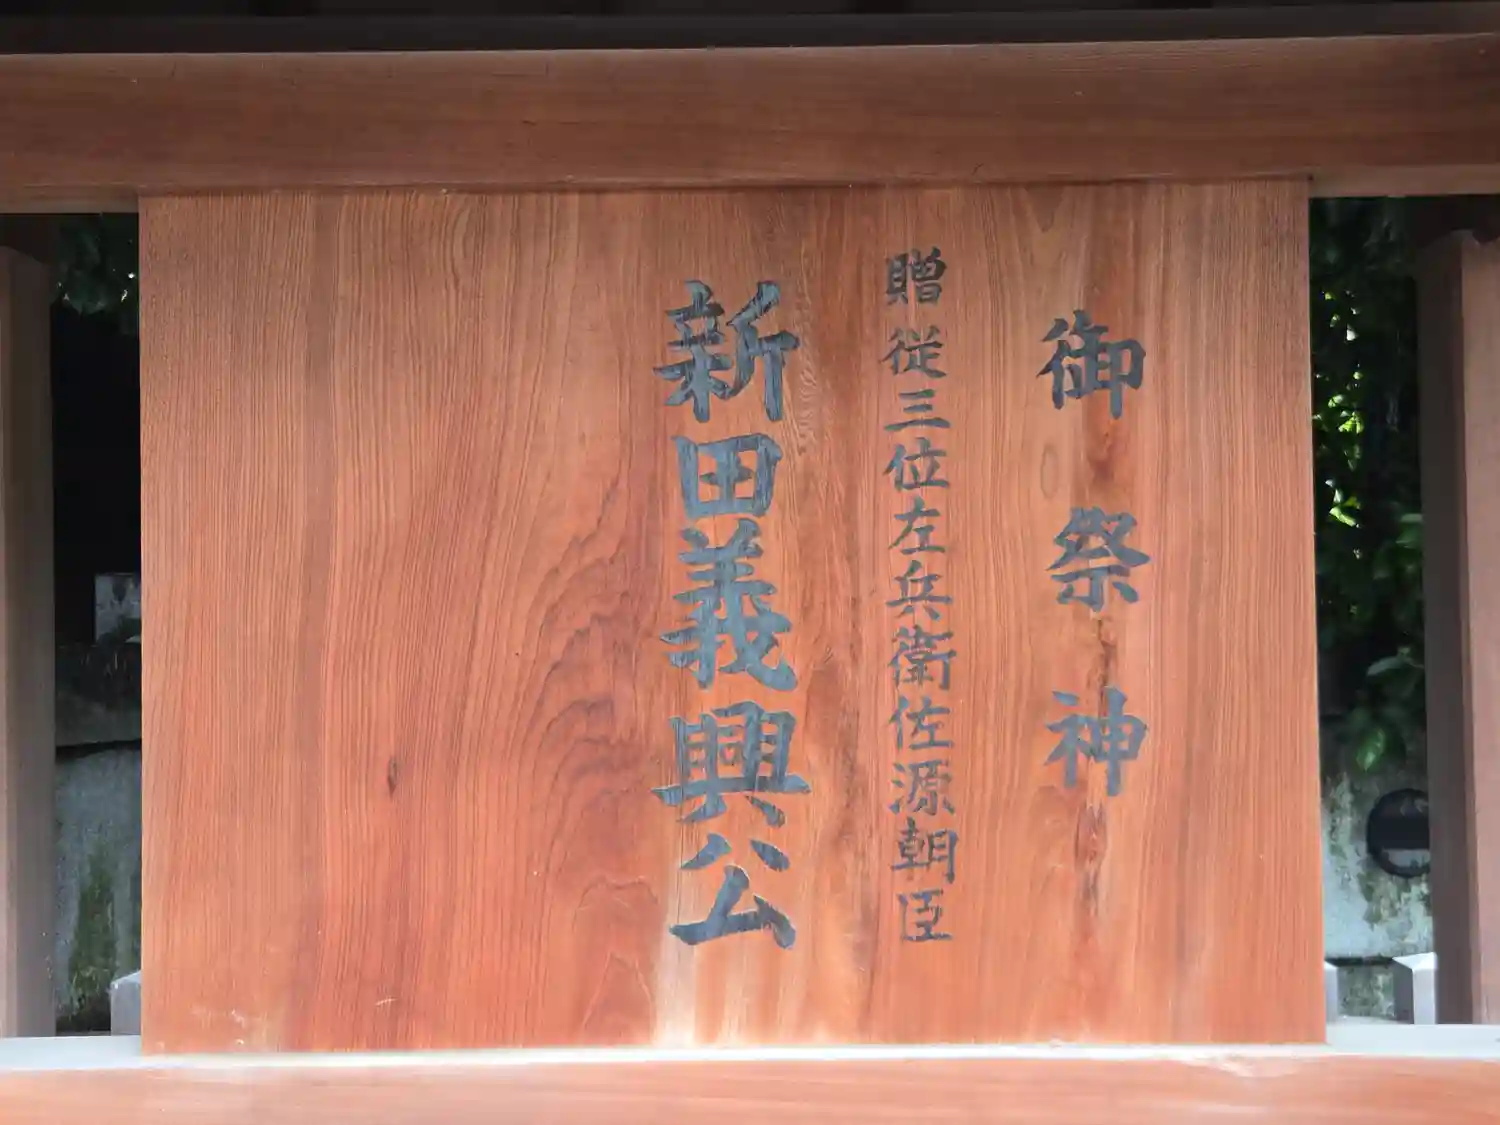 御祭神
贈従三位左兵衛佐源朝臣
新田義興公